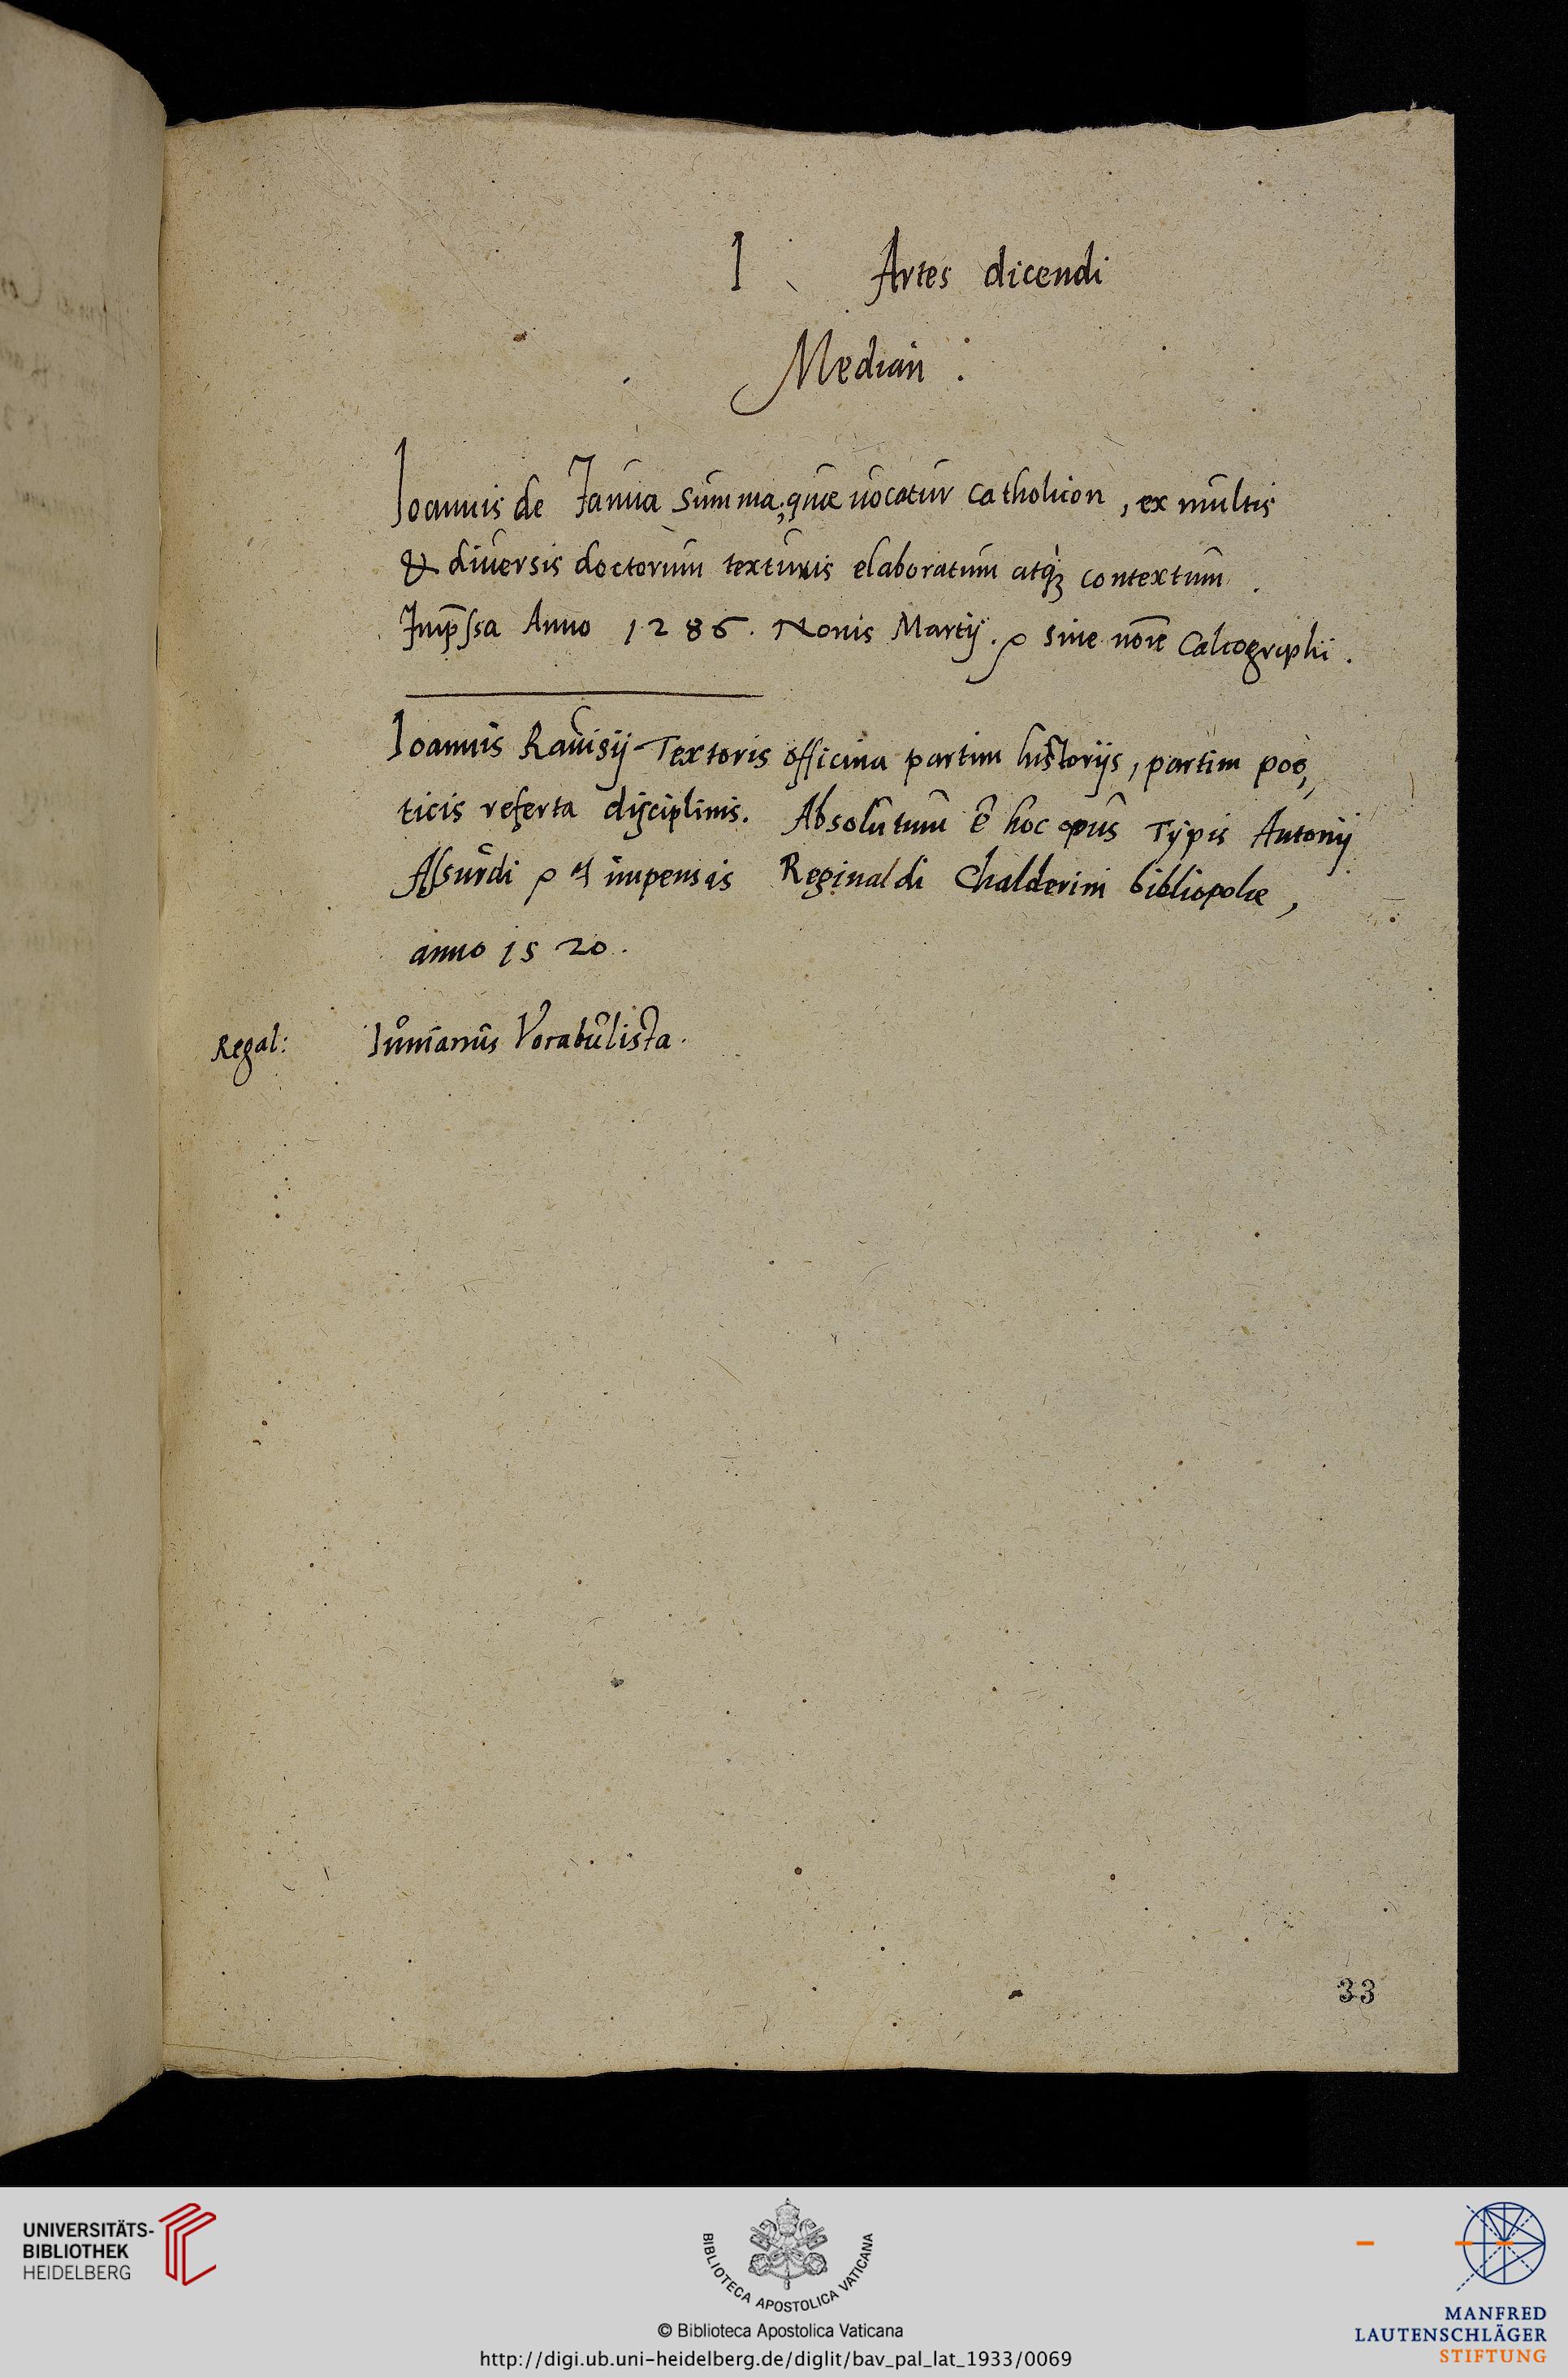 I Artes dicendi
Median .
Ioannis de Janua Summa, quæ uocatur catholicon, ex multis
& diuersis doctorum texturis elaboratum atq́ꝫ contextum .
Imp̄ssa Anno 1286. Nonis Martij. sine nōie Calcographi .
Ioannis Rauisij Textoris officina partim historijs, partim poë,
ticis referta disciplinis. Absolutum ē hoc opus Typis Antonij
Assurdi impensis Reginaldi Chalderini bibliopolæ,
anno 1520.
Regal: Iunianus Vocabulista.
33
UNIVERSITÄTS-
BIBLIOTHEK
HEIDELBERG
BIBLIOTECA APOSTOLICA VATICANA
© Biblioteca Apostolica Vaticana
http://digi.ub.uni-heidelberg.de/diglit/bav_pal_lat_1933/0069
MANFRED
LAUTENSCHLÄGER
STIFTUNG